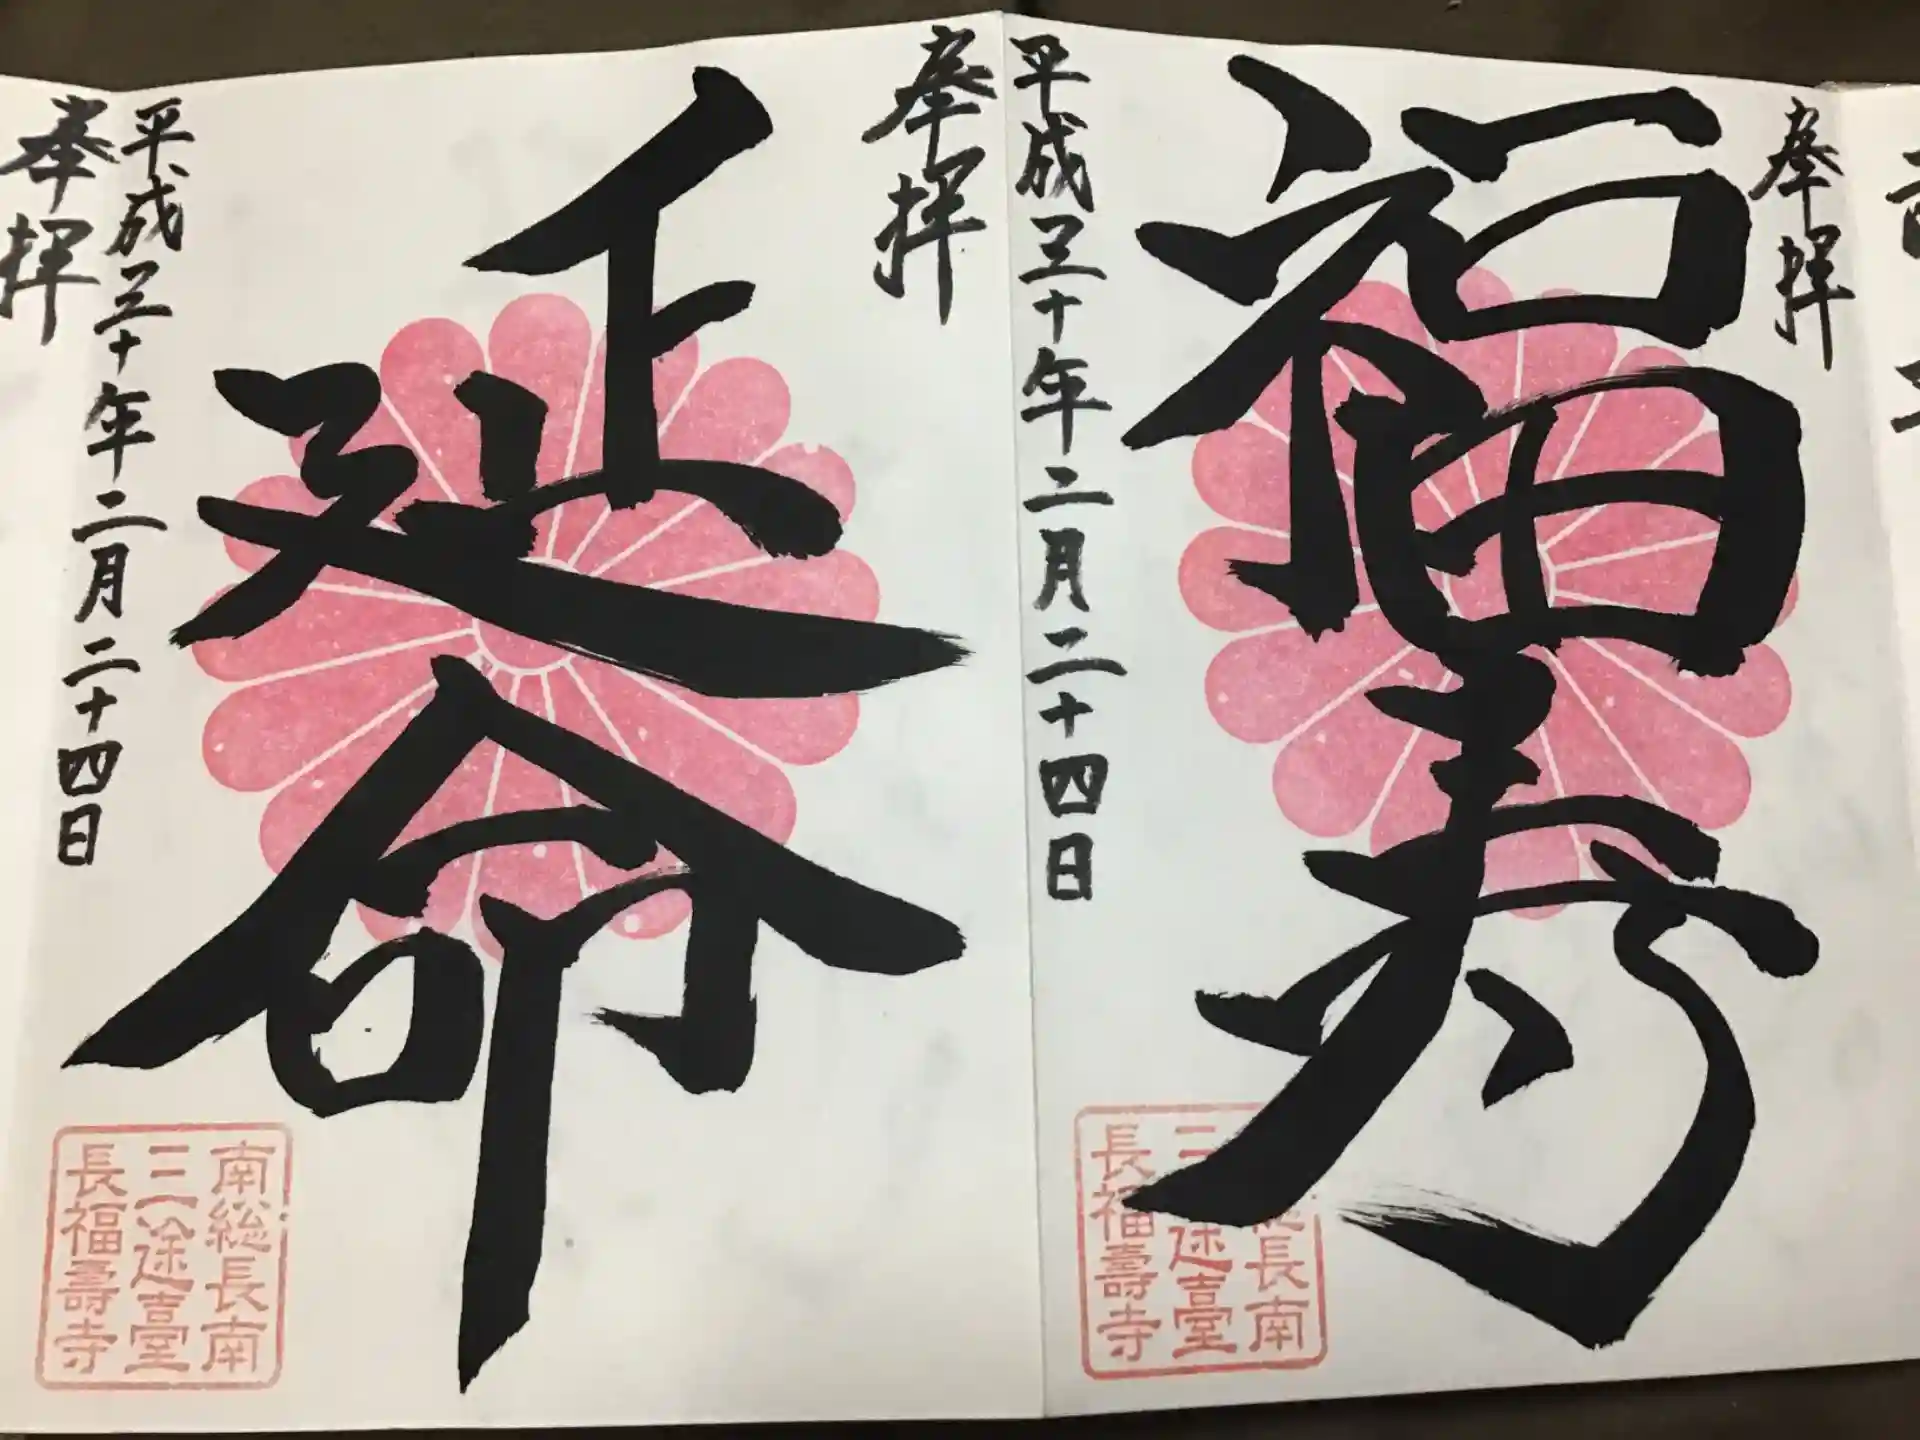 奉拝
福寿
平成三十年二月二十四日
総長南
三途臺
長福壽寺
奉拝
延命
平成三十年二月二十四日
南総長南
三途臺
長福壽寺
奉拝